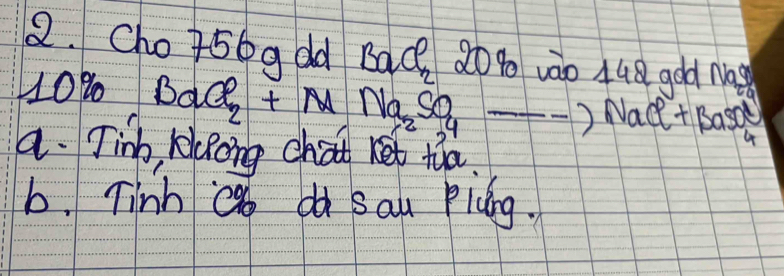 2. Cho 756g dd BaCl₂ 20% vào 142 gdd Na₂SO₄
10% BaCl₂ + Na₂SO₄ ----> NaCl + BaSO₄
a. Tính Klượng chất kết tủa.
b. Tính C% dd sau Pứng.